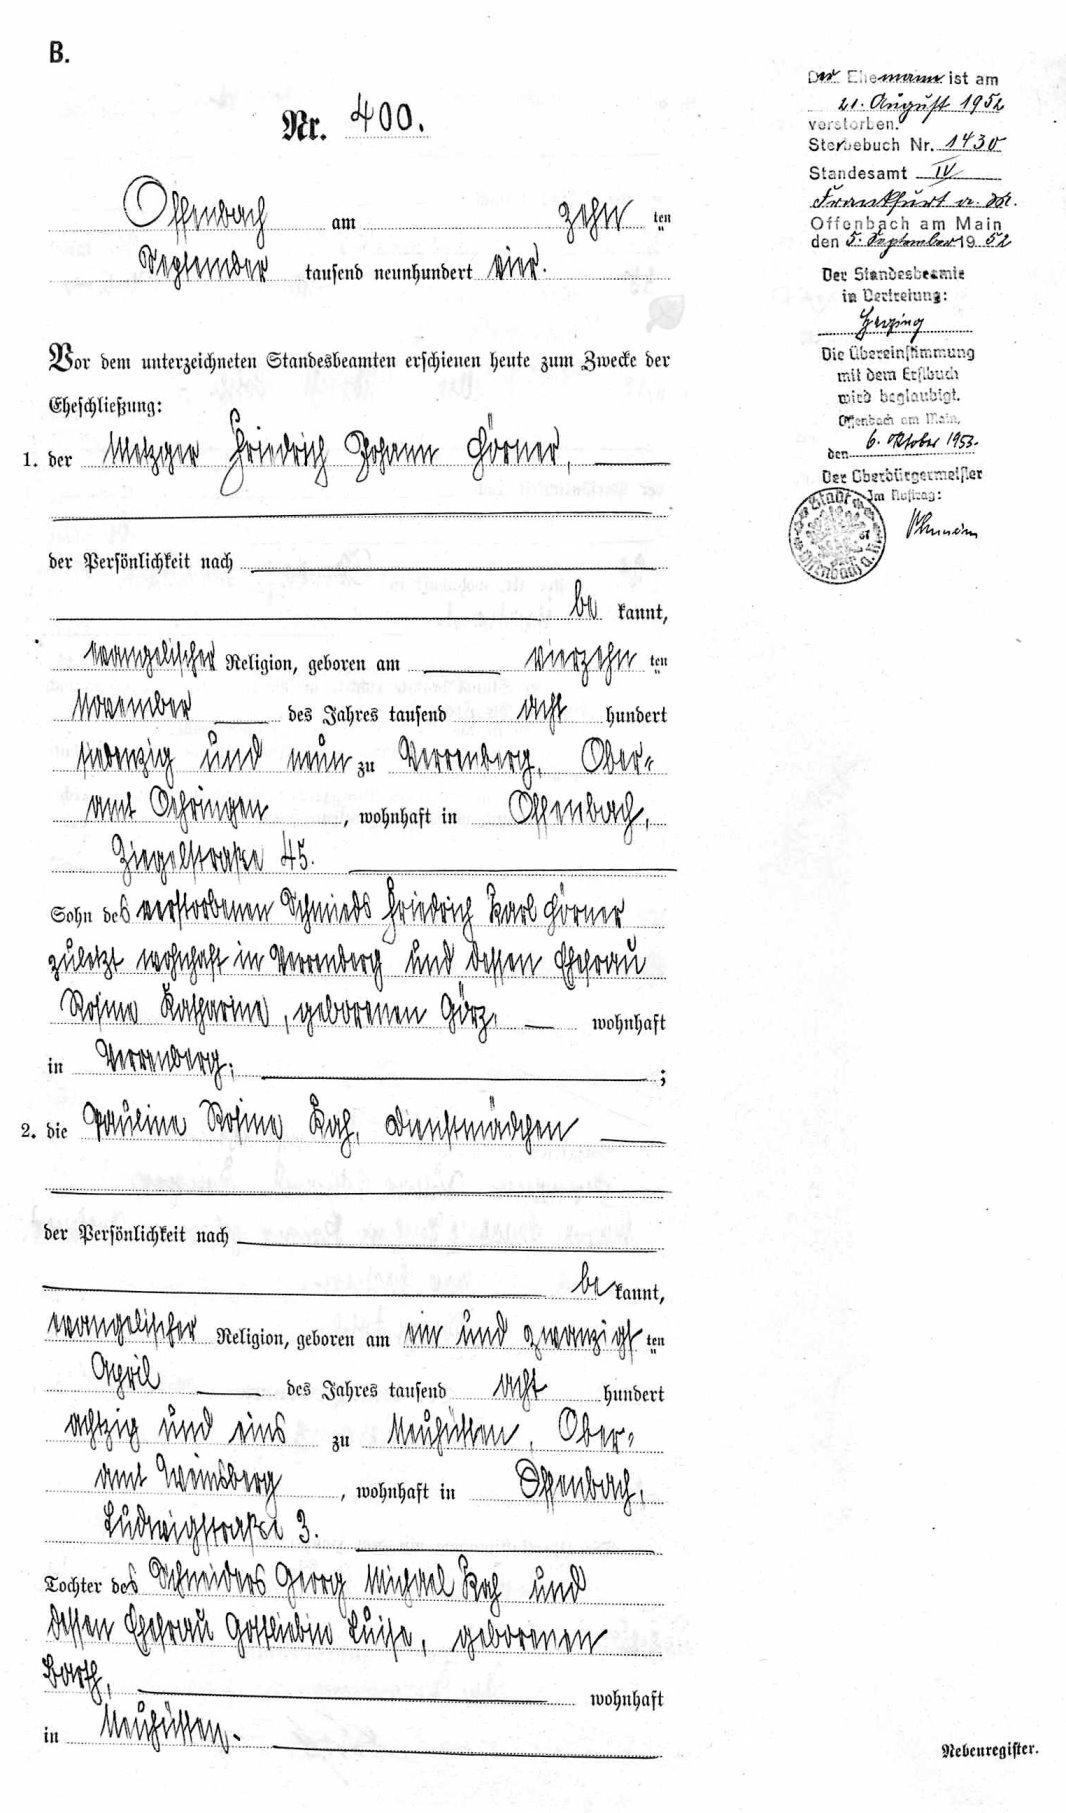 B.
Nr. 400.
Offenbach am zehn ten
September tausend neunhundert vier.
Vor dem unterzeichneten Standesbeamten erschienen heute zum Zwecke der
Eheschließung:
1. der Metzger Friedrich Johann Hörner,
der Persönlichkeit nach
be kannt,
evangelischer Religion, geboren am vierzehn ten
November des Jahres tausend acht hundert
siebenzig und neun zu Verrenberg, Ober-
amt Oehringen, wohnhaft in Offenbach,
Ziegelstraße 45.
Sohn des verstorbenen Schmieds Friedrich Karl Hörner
zuletzt wohnhaft in Verrenberg und dessen Ehefrau
Rosine Katharine, geborenen Görz, wohnhaft
in Verrenberg; ;
2. die Pauline Rosine Kah, Dienstmädchen
der Persönlichkeit nach
be kannt,
evangelischer Religion, geboren am ein und zwanzigs ten
April des Jahres tausend acht hundert
achtzig und eins zu Neuhütten, Ober-
amt Weinsberg, wohnhaft in Offenbach,
Ludwigstraße 3.
Tochter des Schneiders Georg Michael Kah und
dessen Ehefrau Gottliebin Luise, geborenen
Barth, wohnhaft
in Neuhütten.
Der Ehemann ist am
21. August 1952
verstorben.
Sterbebuch Nr. 1430
Standesamt IV
Frankfurt a. M.
Offenbach am Main
den 5. September 1952
Der Standesbeamte
in Vertretung:
Die Übereinstimmung
mit dem Erstbuch
wird beglaubigt.
Offenbach am Main,
den 6. Oktober 1953.
Der Oberbürgermeister
Im Auftrag:
Stadt Offenbach a. M.
Nebenregister.